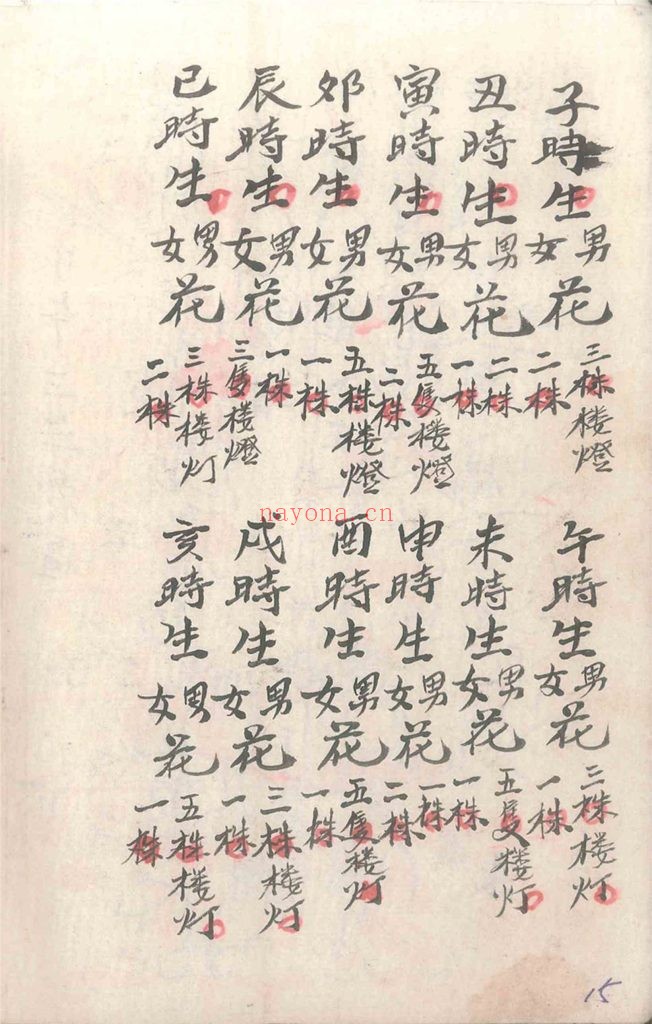 子時生男女花三株楼燈二株
丑時生男女花二株一株
寅時生男女花五隻楼燈二株
卯時生男女花五株楼燈一株
辰時生男女花一株三隻楼燈
巳時生男女花三株楼灯二株
午時生男女花三株楼灯一株
未時生男女花五隻楼灯一株
申時生男女花一株二株
酉時生男女花五隻楼灯一株
戌時生男女花三株楼灯一株
亥時生男女花五株楼灯一株
nayona.cn
15